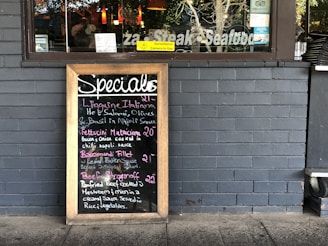 za Steak Seafood
Specials
Linguine Italiano 21-
Hot Salami, Olives
& Basil in Napoli Sauce
Fettucini Matriciana 20-
Bacon & Onion cooked in
chilli napoli sauce
Barramundi Fillet 21-
Beef Stroganoff 22-
Panfried beef cooked in
Mushrooms & onion in a
creamy sauce served w
Rice & vegetables.